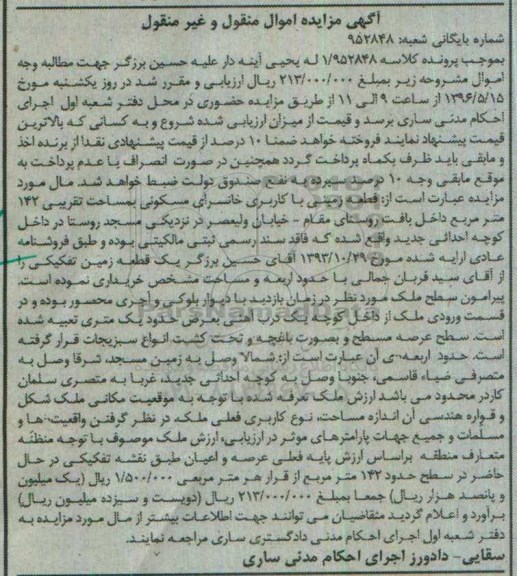 آگهی مزایده اموال منقول و غیر منقول
شماره بایگانی شعبه: ۹۵۲۸۴۸
بموجب پرونده کلاسه ۱/۹۵۲۸۴۸ له یحیی آینه دار علیه حسین برزگر جهت مطالبه وجه
اموال مشروحه زیر بمبلغ ۲۱۳/۰۰۰/۰۰۰ ریال ارزیابی و مقرر شد در روز یکشنبه مورخ
۱۳۹۶/۵/۱۵ از ساعت ۹ الی ۱۱ از طریق مزایده حضوری در محل دفتر شعبه اول اجرای
احکام مدنی ساری برسد و قیمت از میزان ارزیابی شده شروع و به کسانی که بالاترین
قیمت پیشنهاد نمایند فروخته خواهد ضمنا ۱۰ درصد از قیمت پیشنهادی نقدا از برنده اخذ
و مابقی باید ظرف یکماه پرداخت گردد همچنین در صورت انصراف یا عدم پرداخت به
موقع مابقی وجه ۱۰ درصد سپرده به نفع صندوق دولت ضبط خواهد شد. مال مورد
مزایده عبارت است از: قطعه زمینی با کاربری خانسرای مسکونی بمساحت تقریبی ۱۴۲
متر مربع داخل بافت روستای مقام - خیابان ولیعصر در نزدیکی مسجد روستا در داخل
کوچه احداثی جدید واقع شده که فاقد سند رسمی ثبتی مالکیتی بوده و طبق فروشنامه
عادی ارایه شده مورخ ۱۳۹۳/۱۰/۲۹ آقای حسین برزگر یک قطعه زمین تفکیکی را
از آقای سید قربان جمالی با حدود اربعه و مساحت مشخص خریداری نموده است.
پیرامون سطح ملک مورد نظر در زمان بازدید با دیوار بلوکی و آجری محصور بوده و در
قسمت ورودی ملک از داخل کوچه یک درب آهنی بعرض حدود یک متری تعبیه شده
است. سطح عرصه مسطح و بصورت باغچه و تحت کشت انواع سبزیجات قرار گرفته
است. حدود اربعه ی آن عبارت است از: شمالا وصل به زمین مسجد، شرقا وصل به
متصرفی ضیاء قاسمی، جنوبا وصل به کوچه احداثی جدید، غربا به متصرفی سلمان
کاردر محدود می باشد ارزش ملک تعرفه شده با توجه به موقعیت مکانی ملک شکل
و قواره هندسی آن اندازه مساحت، نوع کاربری فعلی ملک، در نظر گرفتن واقعیت ها و
مسلمات و جمیع جهات پارامترهای موثر در ارزیابی، ارزش ملک موصوف با توجه منظنه
متعارف منطقه براساس ارزش پایه فعلی عرصه و اعیان طبق نقشه تفکیکی در حال
حاضر در سطح حدود ۱۴۲ متر مربع از قرار هر متر مربعی ۱/۵۰۰/۰۰۰ ریال (یک میلیون
و پانصد هزار ریال) جمعا بمبلغ ۲۱۳/۰۰۰/۰۰۰ ریال (دویست و سیزده میلیون ریال)
برآورد و اعلام گردید متقاضیان می توانند جهت اطلاعات بیشتر از مال مورد مزایده به
دفتر شعبه اول اجرای احکام مدنی دادگستری ساری مراجعه نمایند.
سقایی- دادورز اجرای احکام مدنی ساری